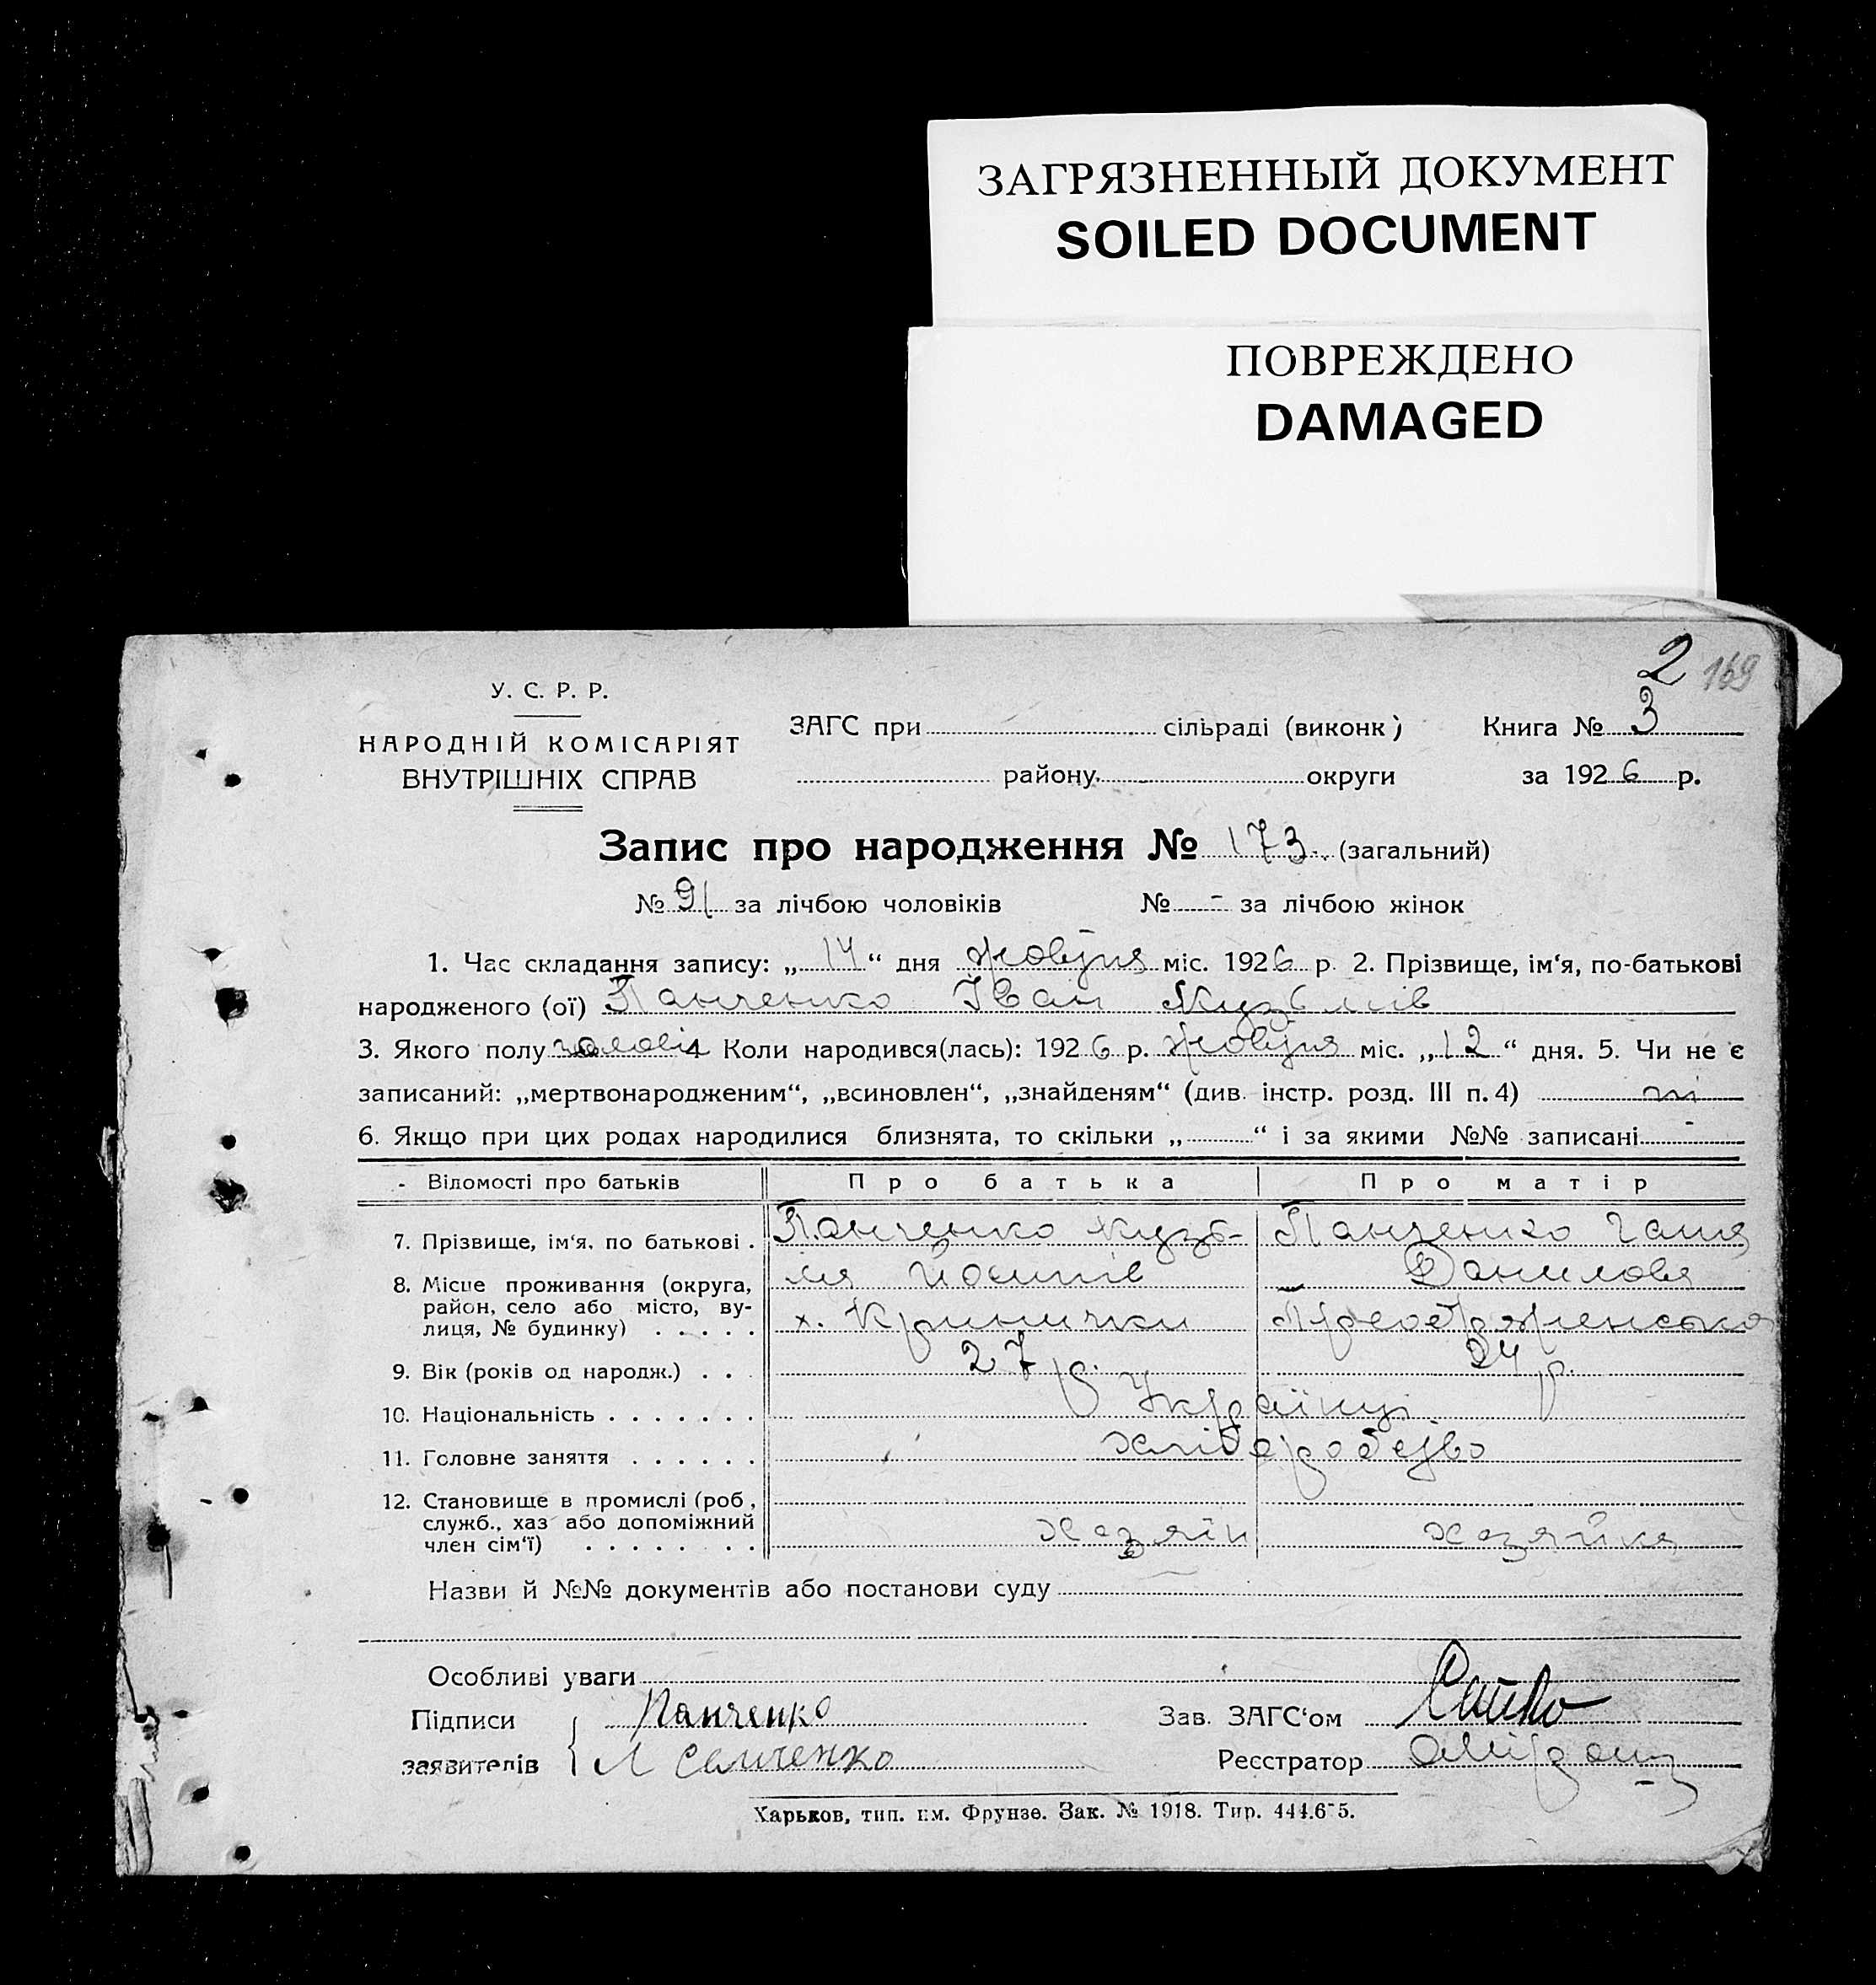 ЗАГРЯЗНЕННЫЙ ДОКУМЕНТ
SOILED DOCUMENT
ПОВРЕЖДЕНО
DAMAGED
2 169
У. С. Р. Р.
НАРОДНІЙ КОМІСАРІЯТ
ВНУТРІШНІХ СПРАВ
ЗАГС при сільраді (виконк) Книга № 3
району округи за 1926 р.
Запис про народження № 173. (загальний)
№ 91 за лічбою чоловіків № - за лічбою жінок
1. Час складання запису: „14“ дня жовтня міс. 1926 р. 2. Прізвище, ім‘я, по-батькові
народженого (ої) Панченко Іван Кузьмів
3. Якого полу чоловіч 4 Коли народився(лась): 1926 р. жовтня міс. „12“ дня. 5. Чи не є
записаний: „мертвонародженим“, „всиновлен“, „знайденям“ (див. інстр. розд. III п. 4) ні
6. Якщо при цих родах народилися близнята, то скільки „ “ і за якими №№ записані -
- Відомості про батьків Про батька Про матір
7. Прізвище, ім‘я, по батькові . Панченко Кузь- Панченко Ганя
8. Місце проживання (округа, мя Йосипів Данилова
район, село або місто, ву-
лиця, № будинку) . . . . . х. Кринички Преображенська
9. Вік (років од народж.) . . . 27 р. 24 р.
10. Національність . . . . . . . Українці
11. Головне заняття . . . . . . хліборобство
12. Становище в промислі (роб.,
служб., хаз або допоміжний хазяїн хазяйка
член сім‘ї) . . . . . . . .
Назви й №№ документів або постанови суду
Особливі уваги
Підписи Панченко Зав. ЗАГС‘ом
заявителів Л Семченко Реєстратор
Харьков, тип. им. Фрунзе. Зак. № 1918. Тир. 444.675.